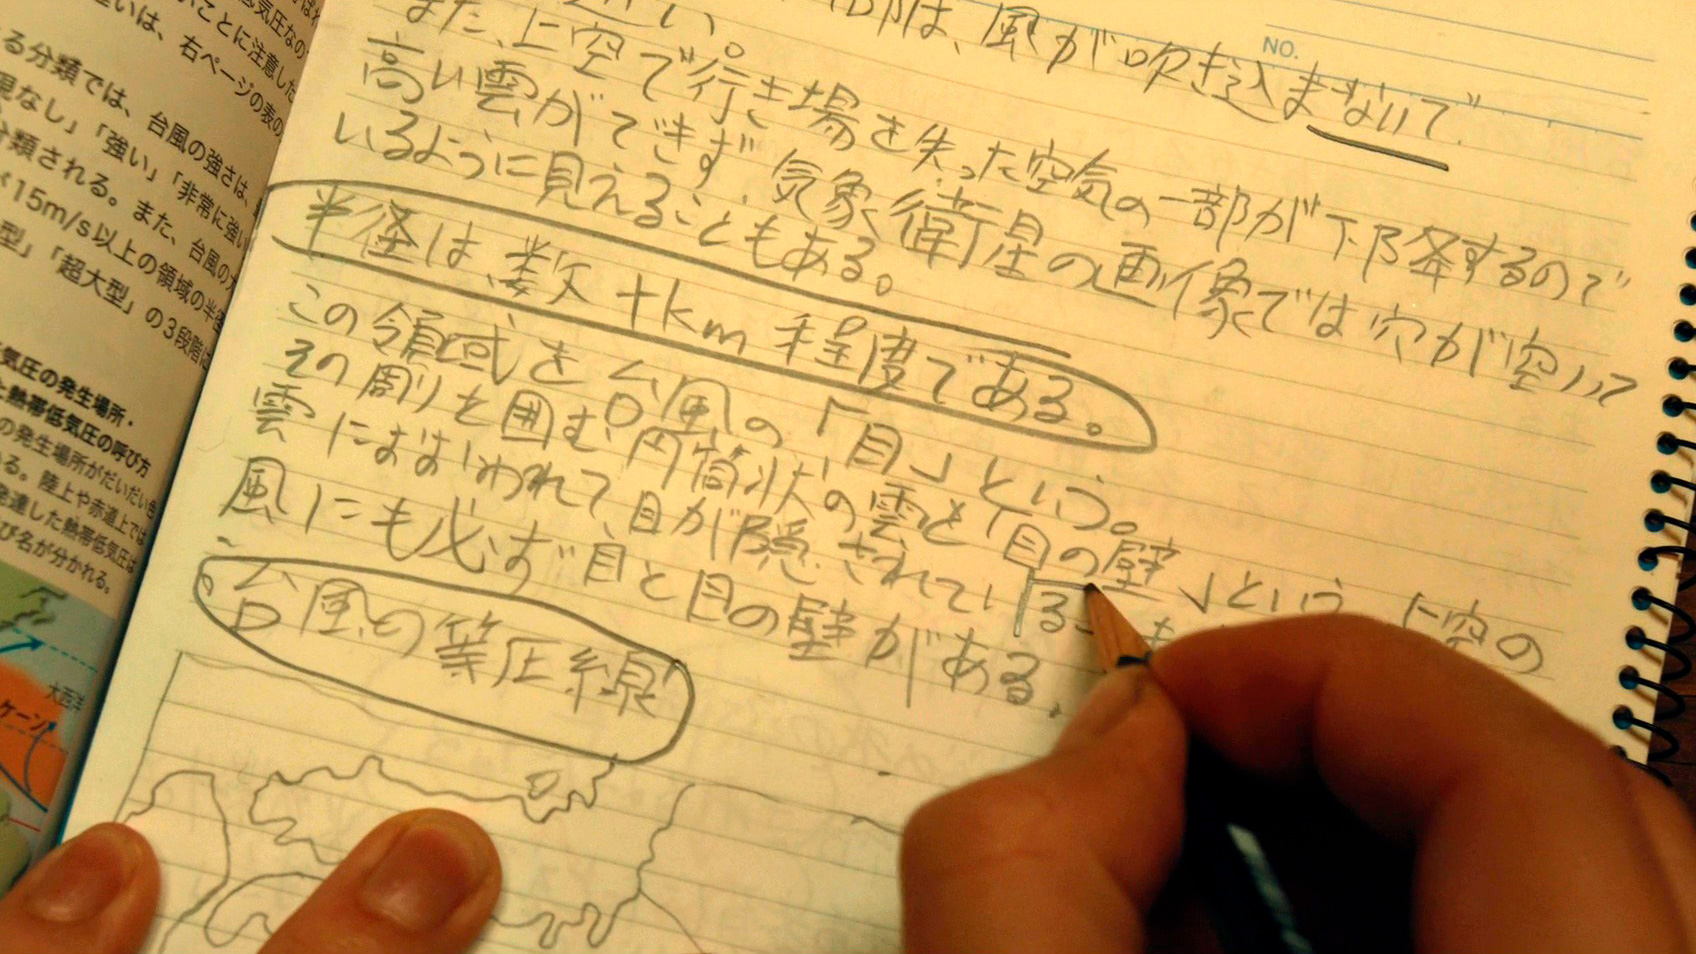 部は、風が吹き込まないで
近い。
また、上空で行き場を失った空気の一部が下降するので
高い雲ができず、気象衛星の画像では穴が空いて
いるように見えることもある。
半径は、数十km程度である。
この領域を台風の「目」という。
その周りを囲む円筒状の雲を「目の壁」という 上空の
雲におおわれて、目が隠されている
風にも必ず目と目の壁がある。
台風の等圧線
NO.
ことに注意した
いは、右ページの表の
る分類では、台風の強さは、
現なし」「強い」「非常に強い
分類される。また、台風の
15m/s以上の領域の半径
型」「超大型」の3段階は
気圧の発生場所・
た熱帯低気圧の呼び方
の発生場所がだいたい
いる。陸上や赤道上では
発達した熱帯低気圧は
び名が分かれる。
大西洋
ケーン